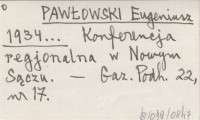 PAWŁOWSKI Eugeniusz
1934... Konferencja
regjonalna w Nowym
Sączu. — Gaz. Podh. 22,
nr 17.